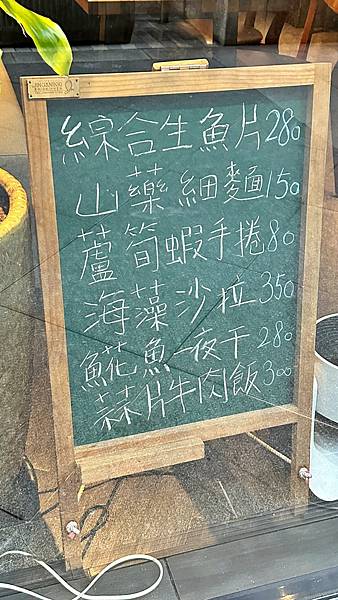 綜合生魚片280
山藥細麵150
蘆筍蝦手捲80
海藻沙拉350
鯡魚一夜干280
蒜片牛肉飯300